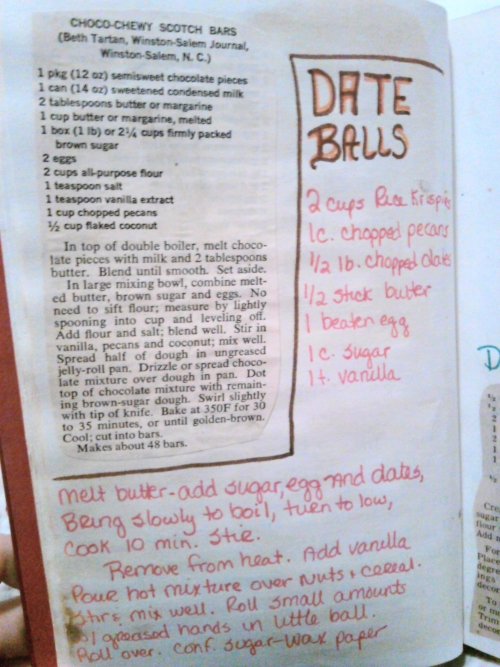 CHOCO-CHEWY SCOTCH BARS
(Beth Tartan, Winston-Salem Journal,
Winston-Salem, N. C.)
1 pkg (12 oz) semisweet chocolate pieces
1 can (14 oz) sweetened condensed milk
2 tablespoons butter or margarine
1 cup butter or margarine, melted
1 box (1 lb) or 2¼ cups firmly packed
brown sugar
2 eggs
2 cups all-purpose flour
1 teaspoon salt
1 teaspoon vanilla extract
1 cup chopped pecans
½ cup flaked coconut
In top of double boiler, melt choco-
late pieces with milk and 2 tablespoons
butter. Blend until smooth. Set aside.
In large mixing bowl, combine melt-
ed butter, brown sugar and eggs. No
need to sift flour; measure by lightly
spooning into cup and leveling off.
Add flour and salt; blend well. Stir in
vanilla, pecans and coconut; mix well.
Spread half of dough in ungreased
jelly-roll pan. Drizzle or spread choco-
late mixture over dough in pan. Dot
top of chocolate mixture with remain-
ing brown-sugar dough. Swirl slightly
with tip of knife. Bake at 350F for 30
to 35 minutes, or until golden-brown.
Cool; cut into bars.
Makes about 48 bars.
DATE
BALLS
2 cups Rice Krispies
1 c. chopped pecans
1/2 lb. chopped dates
1/2 stick butter
1 beaten egg
1 c. sugar
1 t. vanilla
melt butter-add sugar, egg and dates,
Bring slowly to boil, turn to low,
Cook 10 min. stir.
Remove from heat. Add vanilla
Pour hot mixture over nuts & cereal.
Stir & mix well. Roll small amounts
w/ greased hands in little ball.
Roll over. conf. sugar-wax paper